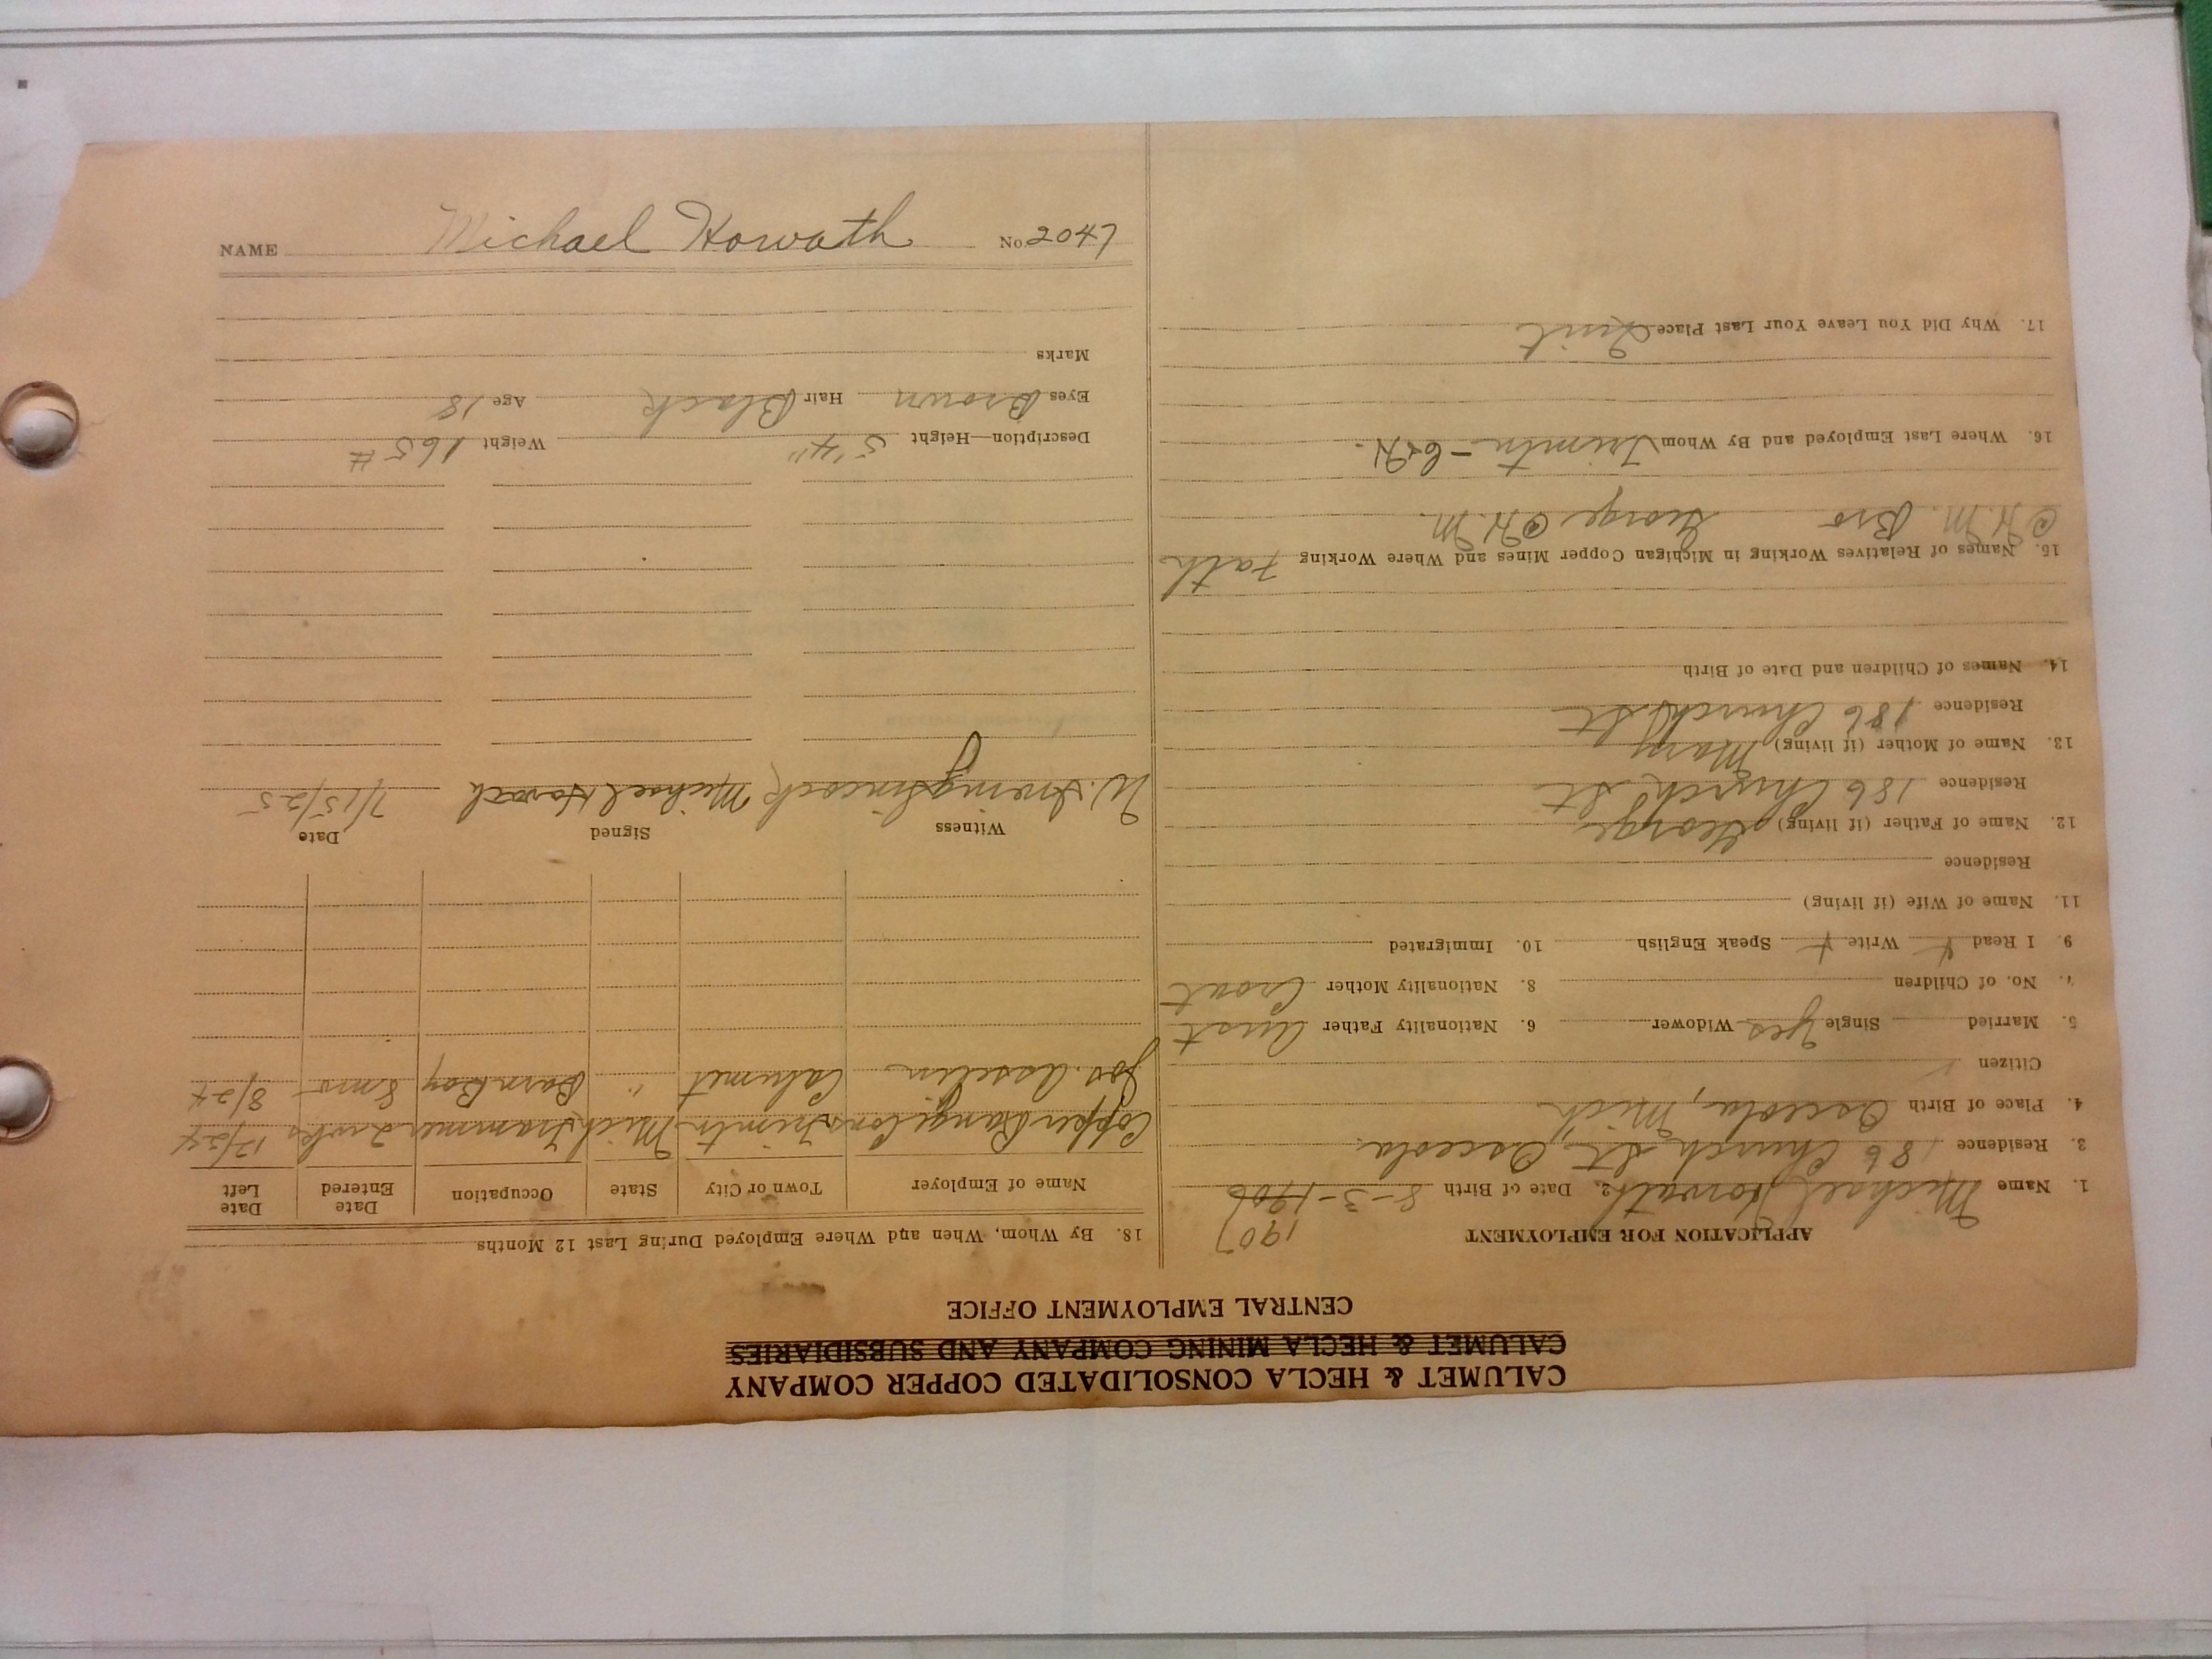 CALUMET & HECLA CONSOLIDATED COPPER COMPANY
CALUMET & HECLA MINING COMPANY AND SUBSIDIARIES
CENTRAL EMPLOYMENT OFFICE
APPLICATION FOR EMPLOYMENT 1907
1. Name Michael Horvath 2. Date of Birth 8-3-1906
3. Residence 186 Church St. Osceola
4. Place of Birth Osceola, Mich
Citizen
5. Married Single Yes Widower 6. Nationality Father Aust
7. No. of Children 8. Nationality Mother Croat
9. I Read Write Speak English 10. Immigrated
11. Name of Wife (if living)
Residence
12. Name of Father (if living) George
Residence 186 Church St
13. Name of Mother (if living) Mary
Residence 186 Church St
14. Names of Children and Date of Birth
15. Names of Relatives Working in Michigan Copper Mines and Where Working Fath
@ H.M. Bro George @ H.M.
16. Where Last Employed and By Whom Trimtn - C&H.
17. Why Did You Leave Your Last Place Quit
18. By Whom, When and Where Employed During Last 12 Months
Name of Employer Town or City State Occupation Date Entered Date Left
Copper Range Cons Trimtn Mich Trammer 2 wks 12/24
Jos. Asselin Calumet " Barn Boy 8 mos 8/24
Witness Signed Date
Michael Horvath 7/15/25
Description—Height 5'4" Weight 165 #
Eyes Brown Hair Black Age 18
Marks
NAME Michael Horvath No. 2047